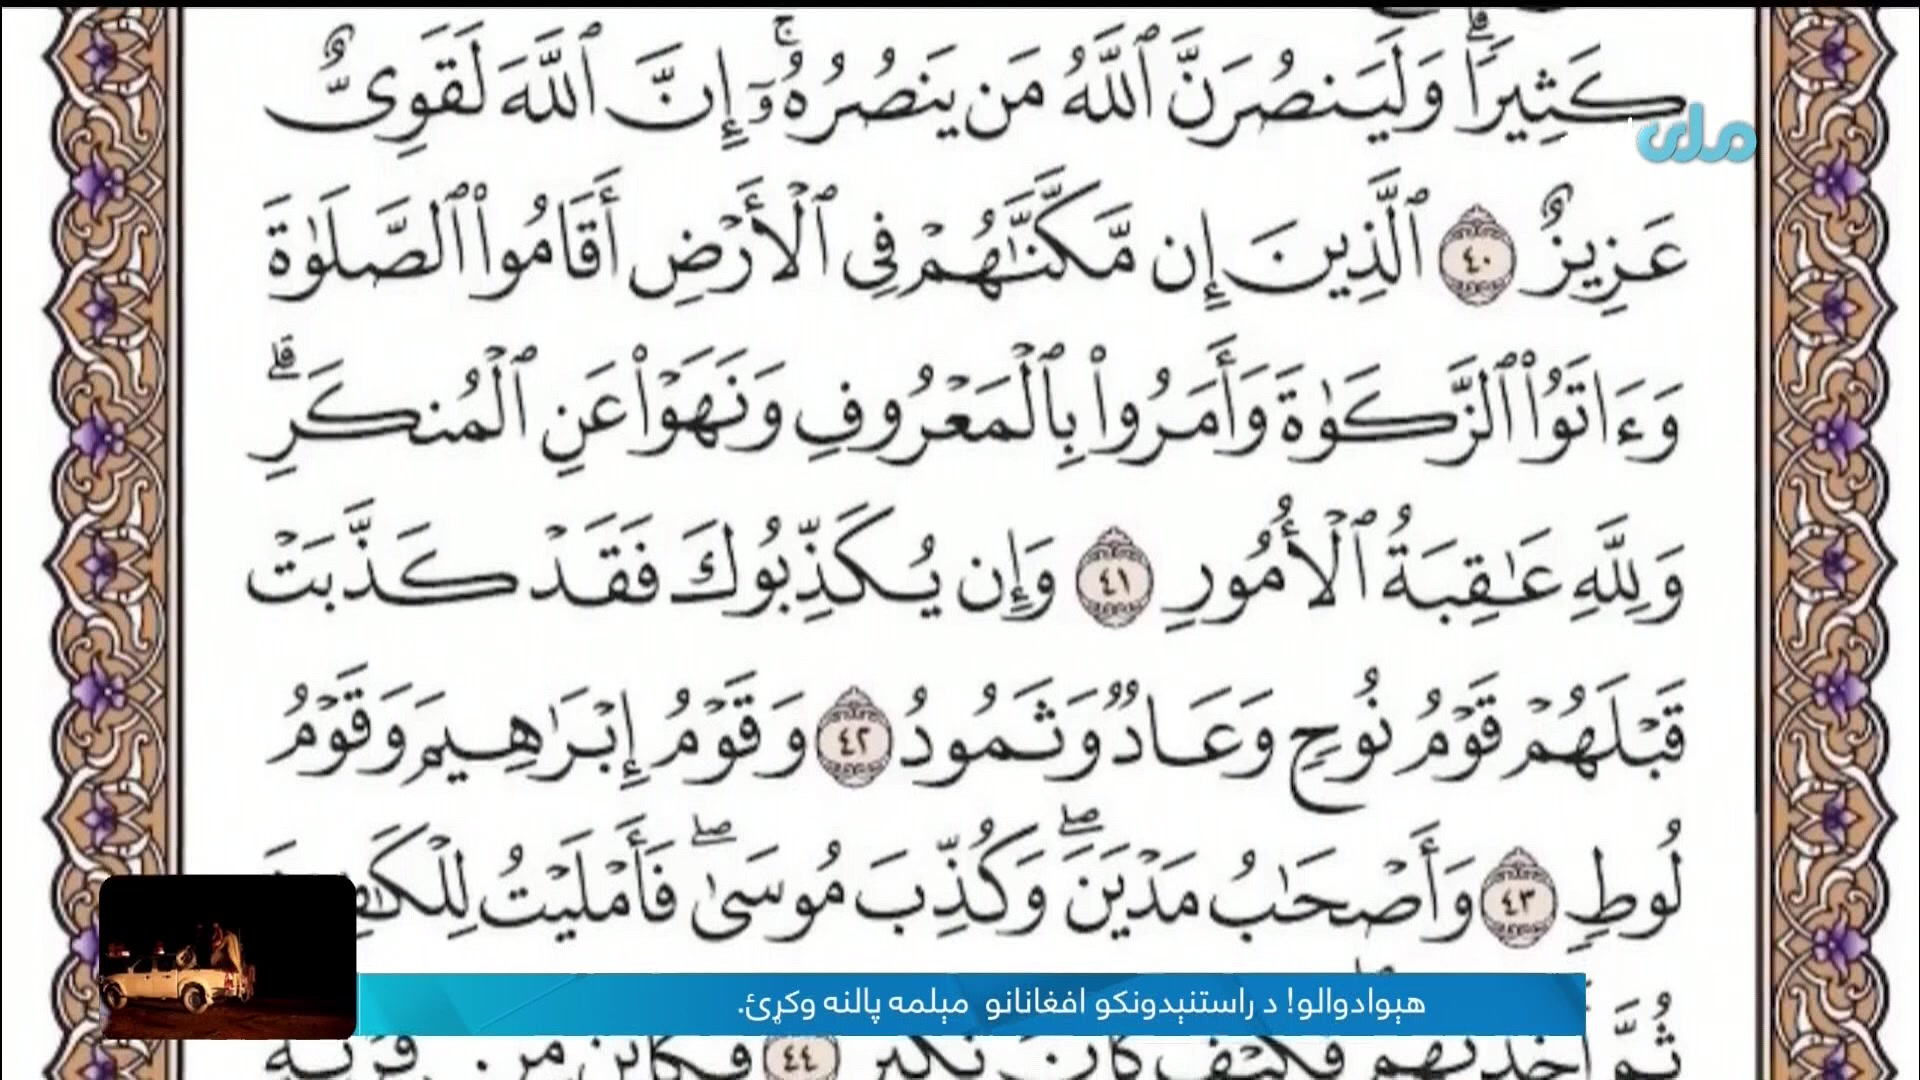 كَثِيرًا ۗ وَلَيَنصُرَنَّ ٱللَّهُ مَن يَنصُرُهُۥٓ ۚ إِنَّ ٱللَّهَ لَقَوِىٌّ
ملی
عَزِيزٌ ٤٠ ٱلَّذِينَ إِن مَّكَّنَّـٰهُمْ فِى ٱلْأَرْضِ أَقَامُوا۟ ٱلصَّلَوٰةَ
وَءَاتَوُا۟ ٱلزَّكَوٰةَ وَأَمَرُوا۟ بِٱلْمَعْرُوفِ وَنَهَوْا۟ عَنِ ٱلْمُنكَرِ ۗ
وَلِلَّهِ عَـٰقِبَةُ ٱلْأُمُورِ ٤١ وَإِن يُكَذِّبُوكَ فَقَدْ كَذَّبَتْ
قَبْلَهُمْ قَوْمُ نُوحٍ وَعَادٌ وَثَمُودُ ٤٢ وَقَوْمُ إِبْرَٰهِيمَ وَقَوْمُ
لُوطٍ ٤٣ وَأَصْحَـٰبُ مَدْيَنَ ۖ وَكُذِّبَ مُوسَىٰ ۖ فَأَمْلَيْتُ
هېوادوالو! د راستنېدونکو افغانانو مېلمه پالنه وکړئ.
ثُمَّ أَخَذْتُهُمْ فَكَيْفَ كَانَ نَكِيرِ ٤٤ فَكَأَيِّن مِّن قَرْيَةٍ